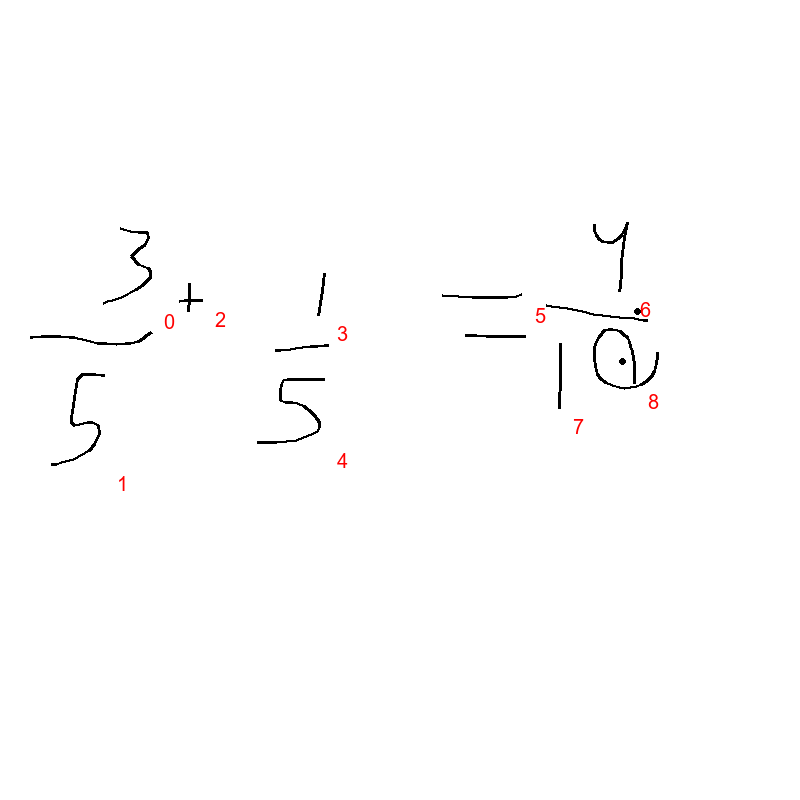 3/5 + 1/5 = 4/10
0 1 2 3 4 5 6 7 8